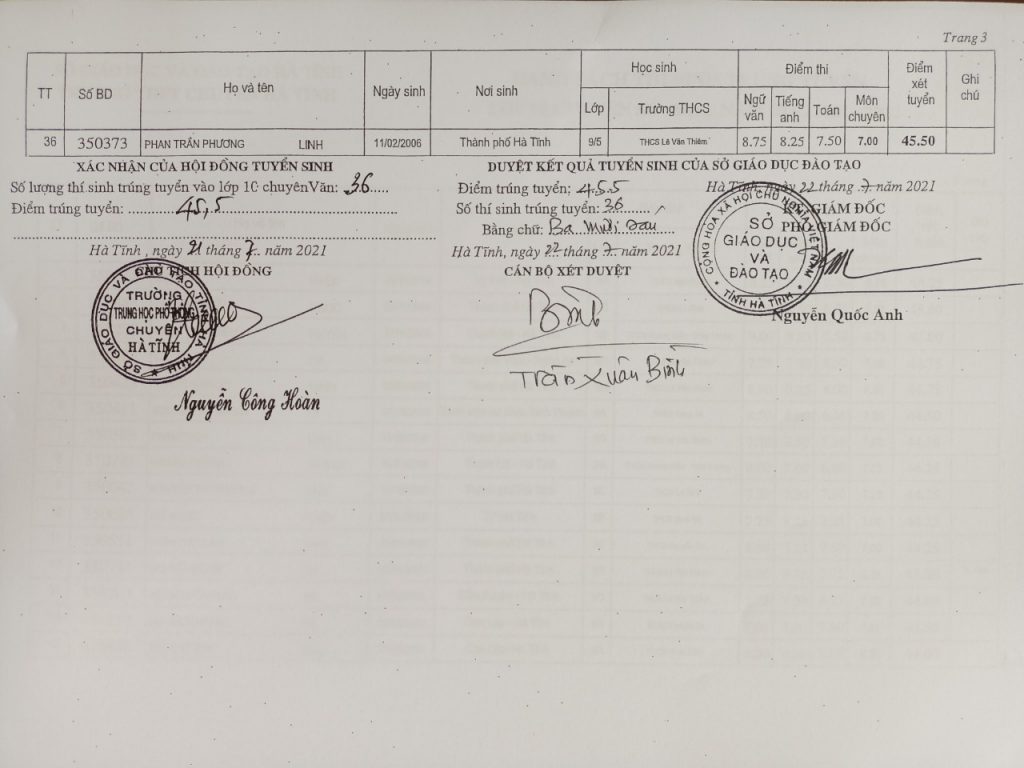 Trang 3
TT Số BD Họ và tên Ngày sinh Nơi sinh Học sinh Điểm thi Điểm xét tuyển Ghi chú
Lớp Trường THCS Ngữ văn Tiếng anh Toán Môn chuyên
36 350373 PHAN TRẦN PHƯƠNG LINH 11/02/2006 Thành phố Hà Tĩnh 9/5 THCS Lê Văn Thiêm 8.75 8.25 7.50 7.00 45.50
XÁC NHẬN CỦA HỘI ĐỒNG TUYỂN SINH
Số lượng thí sinh trúng tuyển vào lớp 10 chuyênVăn: 36
Điểm trúng tuyển: 45,5
Hà Tĩnh , ngày 21 tháng 7 năm 2021
CHỦ TỊCH HỘI ĐỒNG
SỞ GIÁO DỤC VÀ ĐÀO TẠO TỈNH HÀ TĨNH
TRƯỜNG
TRUNG HỌC PHỔ THÔNG
CHUYÊN
HÀ TĨNH
Nguyễn Công Hoàn
DUYỆT KẾT QUẢ TUYỂN SINH CỦA SỞ GIÁO DỤC ĐÀO TẠO
Điểm trúng tuyển: 45.5
Số thí sinh trúng tuyển: 36
Bằng chữ: Ba mươi sáu
Hà Tĩnh, ngày 22 tháng 7 năm 2021
CÁN BỘ XÉT DUYỆT
Trần Xuân Bình
Hà Tĩnh, ngày 22 tháng 7 năm 2021
KT. GIÁM ĐỐC
PHÓ GIÁM ĐỐC
CỘNG HÒA XÃ HỘI CHỦ NGHĨA VIỆT NAM
SỞ
GIÁO DỤC
VÀ
ĐÀO TẠO
TỈNH HÀ TĨNH
Nguyễn Quốc Anh